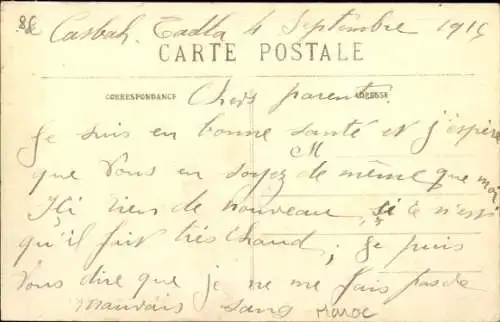 88
Casbah. Tadla 4 Septembre 1915
CARTE POSTALE
CORRESPONDANCE
ADRESSE
Chers parents.
Je suis en bonne santé et j'espère
M
que Vous en soyez de même que moi
Ici rien de nouveau, si ce n'est
qu'il fait très chaud; Je puis
Vous dire que je ne me fais pas de
mauvais sang
MAROC